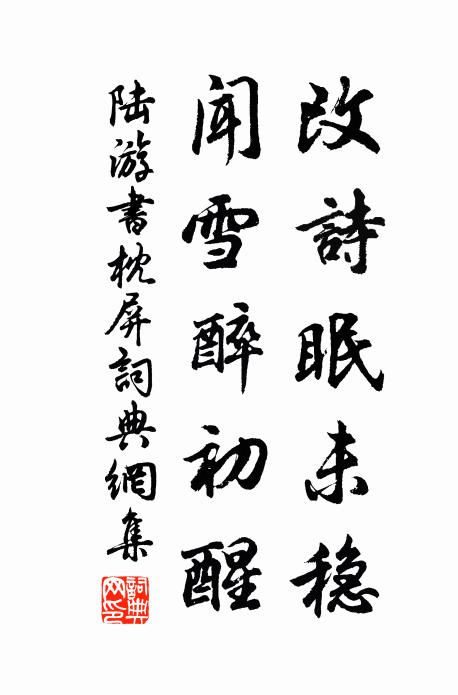 改詩眠未穏
聞雪醉初醒
陸游書枕屏詞典網集
詞典網印